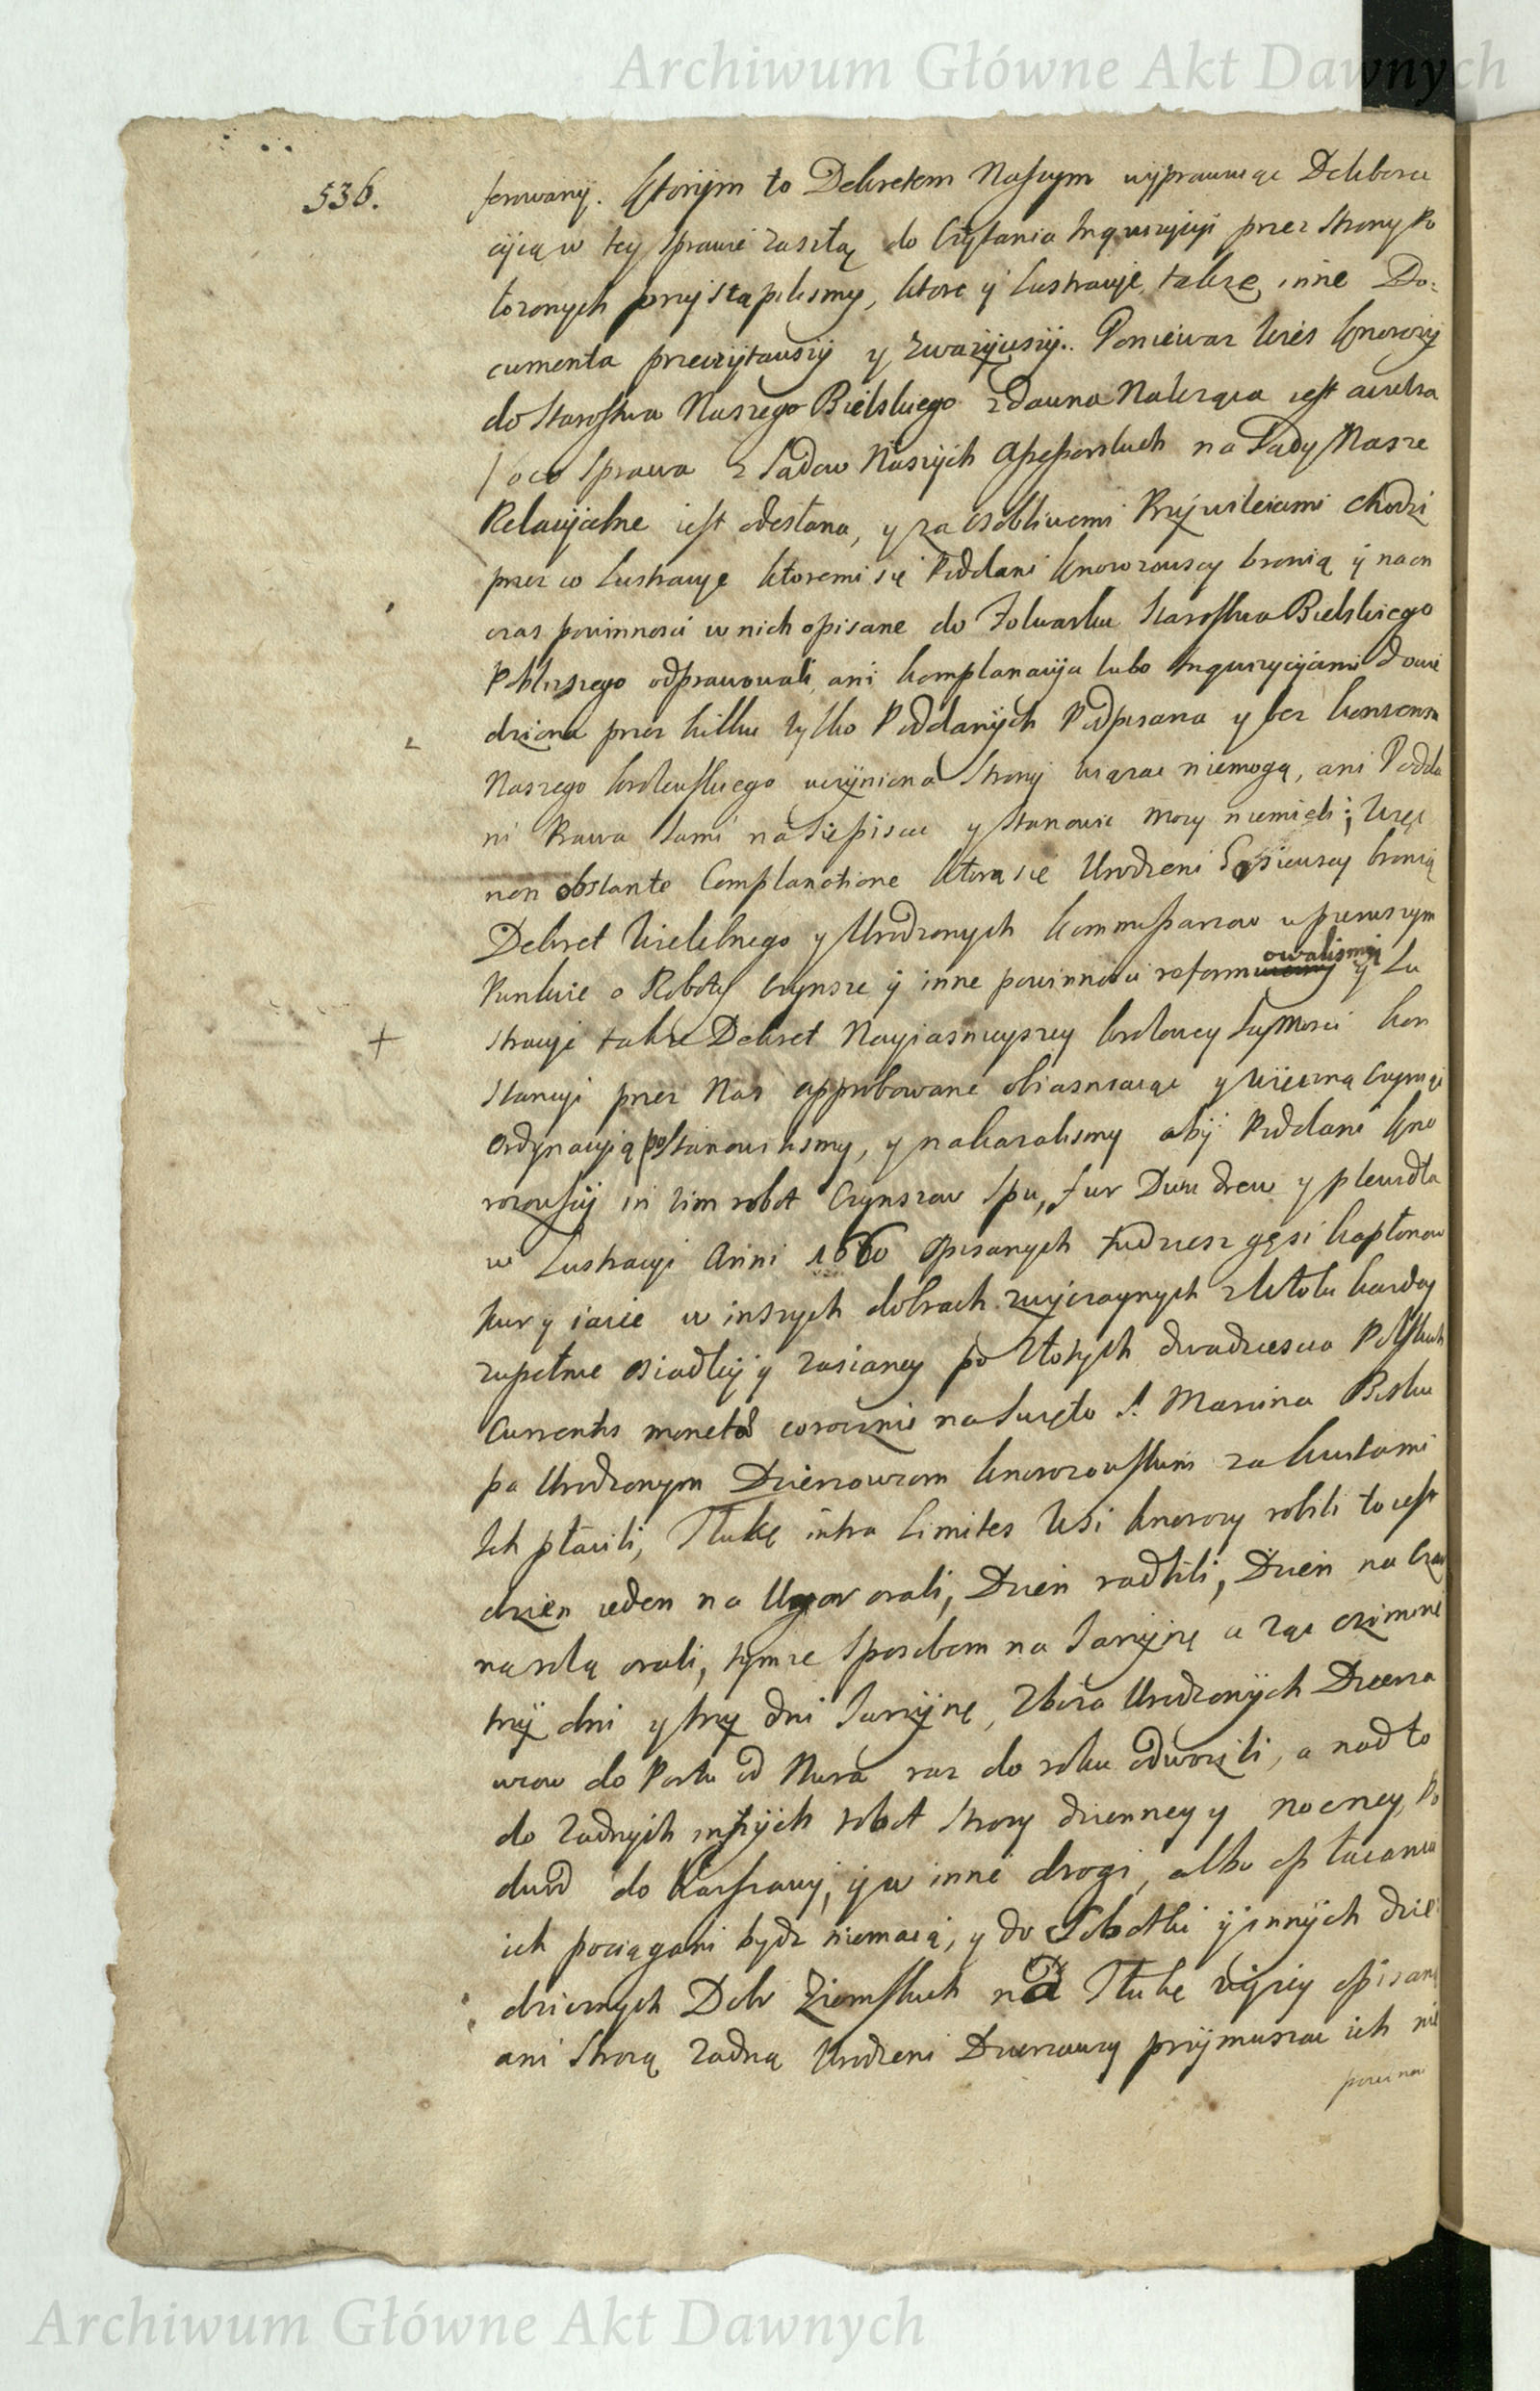 Archiwum Główne Akt Dawnych
536.
ferowany. Ktorym to Dekretem Naszym wyprawując Delibera
cyią w tey Sprawie zaszłą do Czytania Inquizycyi przez Strony Po
łozonych przystąpilismy, ktore y Lustracyie, takze inne Do=
cumenta przeczytawszy y zwazywszy. Poniewaz Wies Knorozy
do Starostwa Naszego Bielskiego zdawna Naleząca iest
oco Sprawa z Sądow Naszych Assessorskich na Sądy Nasze
Relacyine iest odesłana, y za osobliwemi Przywileiami chodzi
przez co Lustracye ktoremi się Poddani Knorozowscy bronią y na on
czas powinnosci w nich opisane do Folwarku Starostwa Bielskiego
Poblizszego odprawowali, ani komplanacya lubo Inquizycyiami dowie
dziona przez kilku tylko Poddanych Podpisana y bez konsensu
Naszego krolewskiego uczyniona Strony wiązac niemogą, ani Podda
ni Prawa sami na się pisac y stanowic mocy niemieli; Więc
non obstante Complanatione ktorą się Urodzeni bronią
Dekret Wielebnego y Urodzonych kommissarzow w pierwszym
Punkcie o Roboty Czynsze y inne powinnosci reformowalismy y Lu
stracyi takze Dekret Nayiasnieyszey krolowey Jeymosci kon
stancyi przez Nas approbowane obiasniaiąc y wieczną czyniąc
Ordynacyią postanowilismy, y nakazalismy aby Poddani Kno
rozowscy in vim robot Czynszow Spu, fur Dwu drew y plewidła
w Lustracyi Anni 1660 opisanych tudziesz gęsi kapłonow
kur y iaiec w inszych dobrach zwyczaynych z Włoki kazdey
zupełnie osiadłey y zasianey po Złotych dwadziescia Polskich
Currentis moneta corocznie na Swięto S. Marcina Bisku
pa Urodzonym Dzierzawcom knorozowskim za kwitami
Ich płacili, Tłukę intra Limites Wsi knorozy robili to iest
dzien ieden na Ugor orali, Dzien radlili, Dzien na
na rolą orali, tymze Sposobem na Jarzynę a ząc oziminę
trzy dni y trzy dni Jarzynę, Zboza Urodzonych Dzierza
wcow do Portu od Nura raz do roku odwozili, a nadto
do zadnych inszych robot Strozy dzienney y nocney, Po
dwod do Warszawy, y w inne drogi, albo opłacania
ich pociągani bydz niemaią, y do Sobotki y innych dzie
dzicznych Dobr Ziemskich nad Tłukę wyzey opisaną
ani Strozą zadną Urodzeni Dzierzawcy przymuszac ich nie
powinni
Archiwum Główne Akt Dawnych